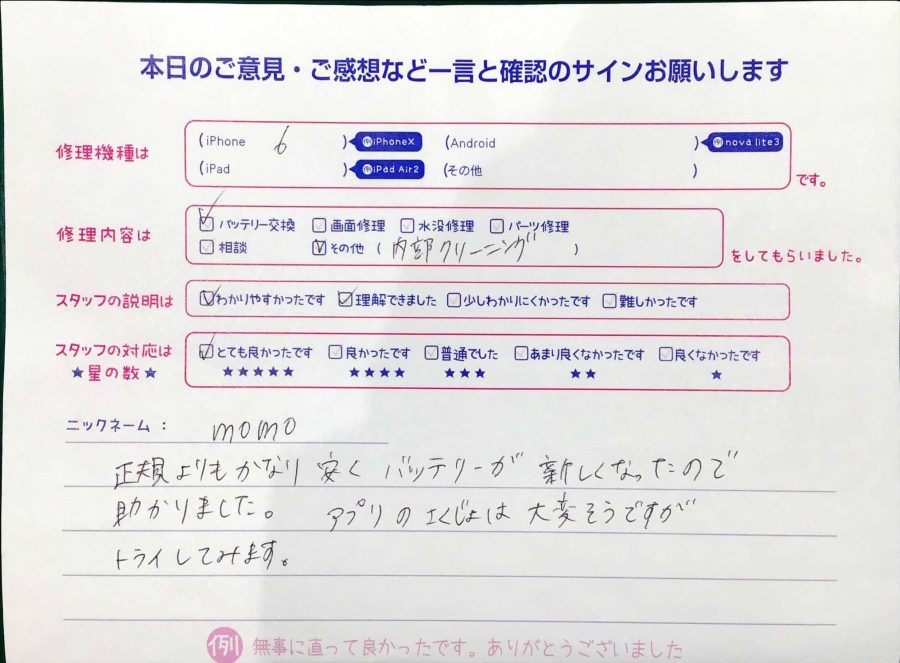 本日のご意見・ご感想など一言と確認のサインお願いします
修理機種は
(iPhone 6 ) 例iPhoneX (Android ) 例nova lite3
(iPad ) 例iPad Air2 (その他 ) です。
修理内容は
バッテリー交換 画面修理 水没修理 パーツ修理
相談 その他 ( 内部クリーニング ) をしてもらいました。
スタッフの説明は わかりやすかったです 理解できました 少しわかりにくかったです 難しかったです
スタッフの対応は とても良かったです 良かったです 普通でした あまり良くなかったです 良くなかったです
★星の数★ ★★★★★ ★★★★ ★★★ ★★ ★
ニックネーム： momo
正規よりもかなり安くバッテリーが新しくなったので
助かりました。 アプリのさくじょは大変そうですが
トライしてみます。
例 無事に直って良かったです。ありがとうございました